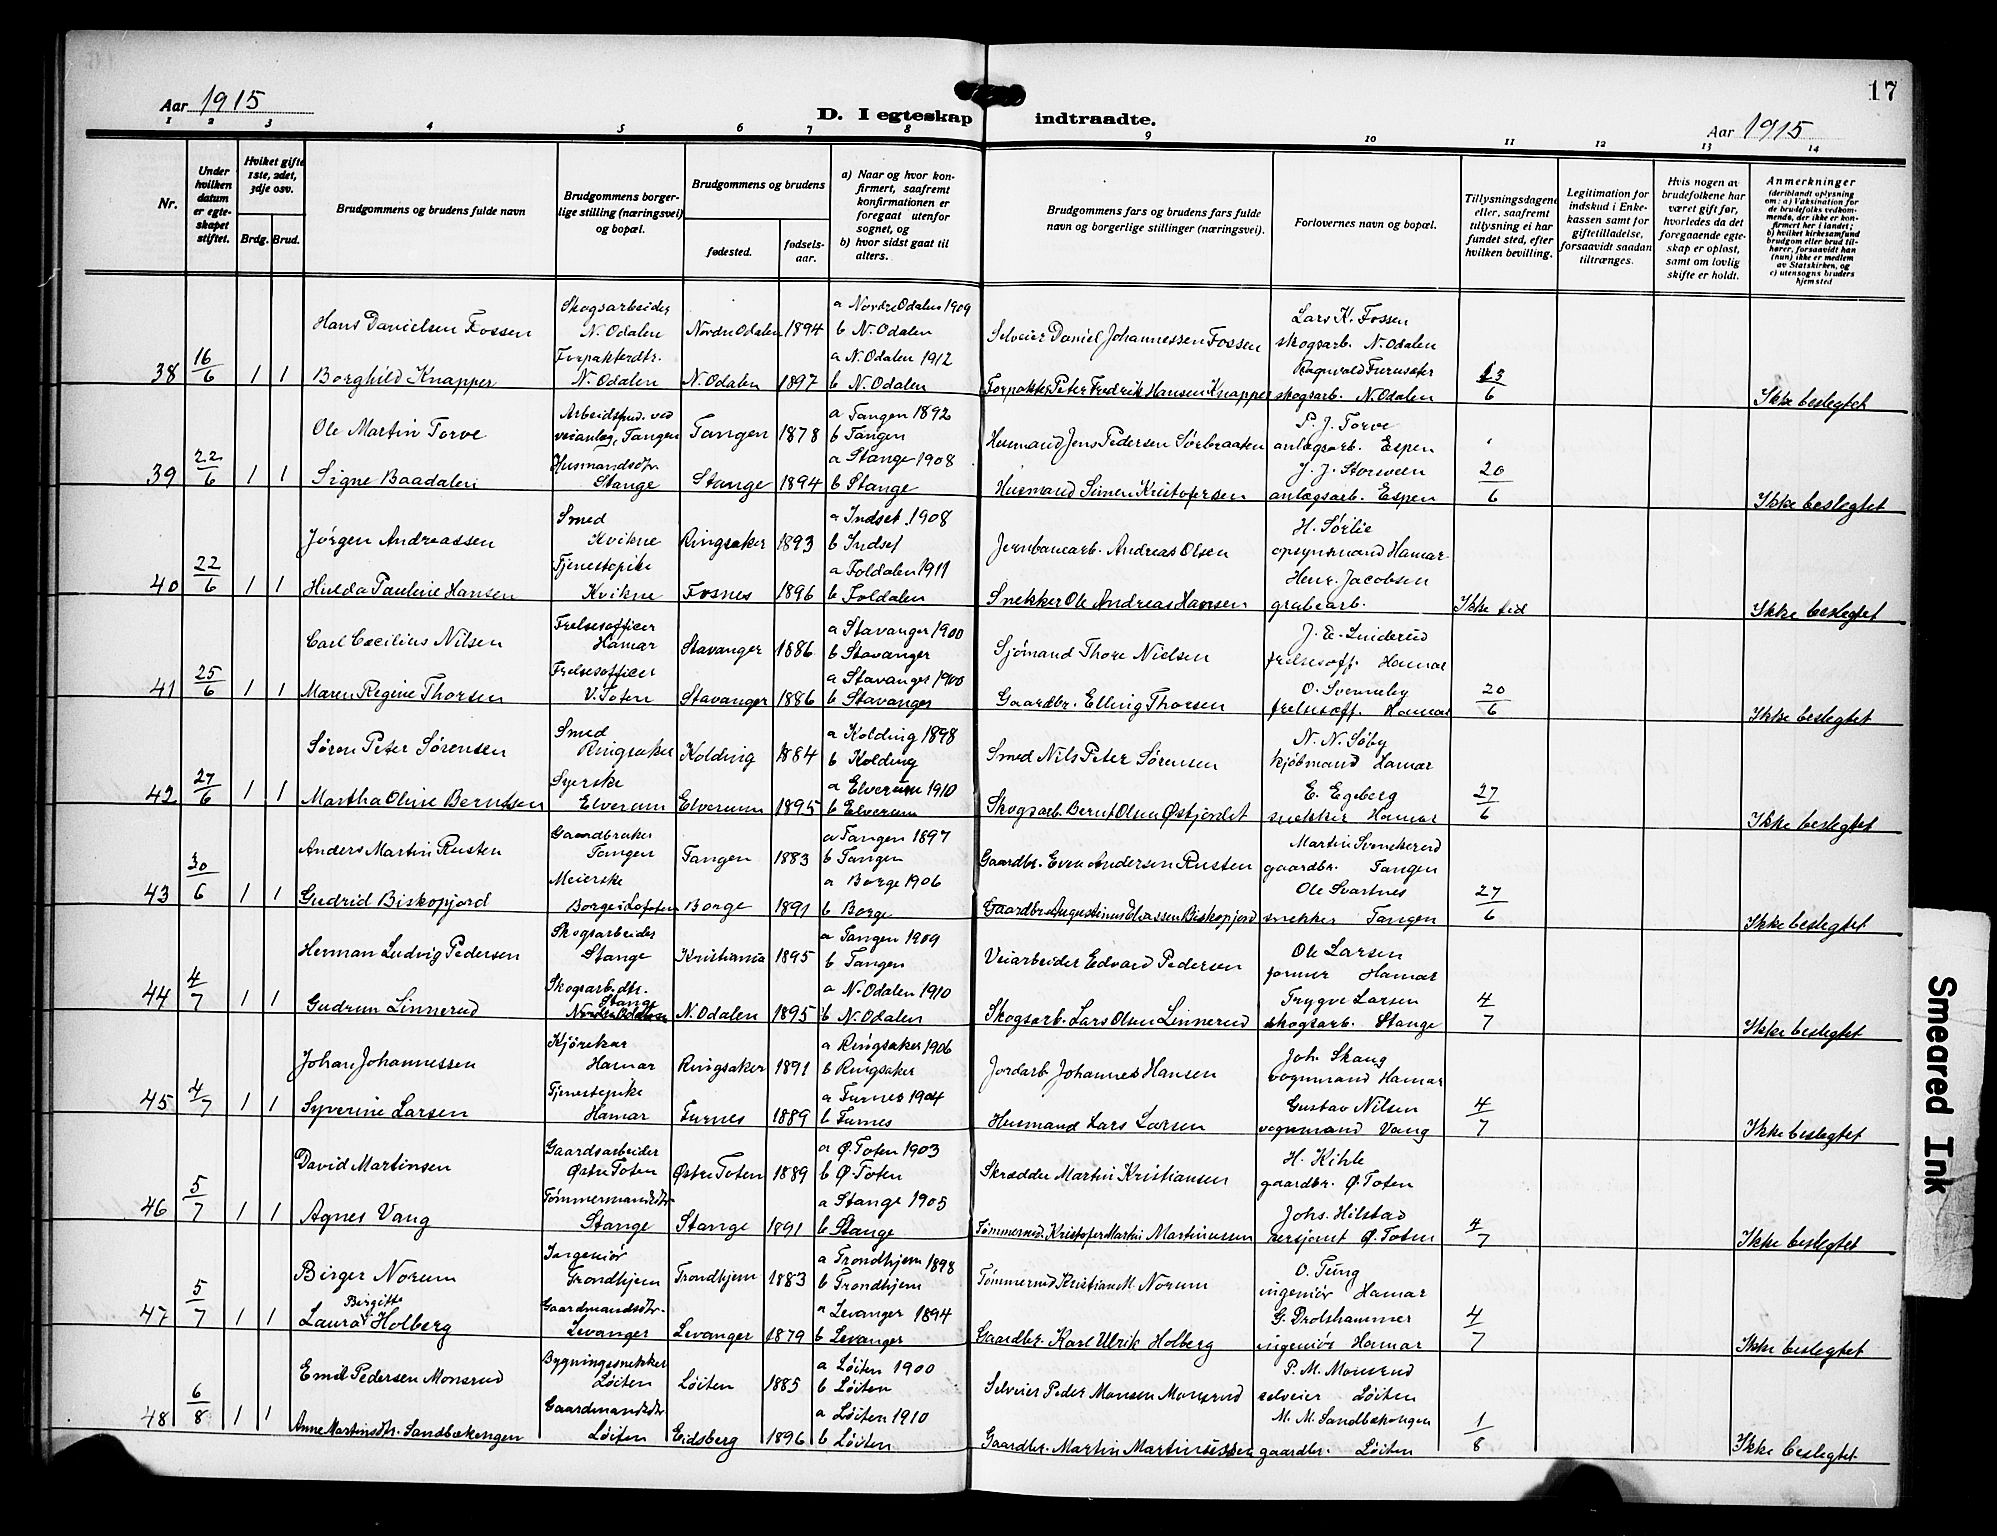 17
Aar 1915
D. I egteskap indtraadte.
Aar 1915
1 2 3 4 5 6 7 8 9 10 11 12 13 14
Nr.
Under hvilken datum er egteskapet stiftet.
Hvilket gifte 1ste, 2det, 3dje osv.
Brdg. Brud.
Brudgommens og brudens fulde navn
Brudgommens borgerlige stilling (næringsvei) og bopæl.
Brudgommens og brudens
fødested. fødselsaar.
a) Naar og hvor konfirmert, saafremt konfirmationen er foregaat utenfor sognet, og
b) hvor sidst gaat til alters.
Brudgommens fars og brudens fars fulde navn og borgerlige stillinger (næringsvei).
Forlovernes navn og bopæl.
Tillysningsdagene eller, saafremt tillysning ei har fundet sted, efter hvilken bevilling.
Legitimation for indskud i Enkekassen samt for giftetilladelse, forsaavidt saadan tiltrænges.
Hvis nogen av brudefolkene har været gift før, hvorledes da det foregaaende egteskap er opløst, samt om lovlig skifte er holdt.
Anmerkninger
(deriblandt oplysning om: a) Vaksination for de brudefolks vedkommende, der ikke er konfirmert her i landet; b) hvilket kirkesamfund brudgom eller brud tilhører, forsaavidt han (hun) ikke er medlem av Statskirken, og c) utensogns bruders hjemsted
Hans Danielsen Fossen Skogsarbeider N. Odalen Nordre Odalen 1894 a Nordre Odalen 1909 b N. Odalen Selveier Daniel Johannessen Fossen Lars K. Fossen skogsarb. N. Odalen
38 16/6 1 1 Borghild Knapper Forpakterdtr. N. Odalen N. Odalen 1897 a N. Odalen 1912 b N. Odalen Forpakter Peter Fredrik Hansen Knapper Ragnvald Furuseter skogsarb. N. Odalen 13/6 Ikke beslegtet
Ole Martin Torve Arbeidsfud. ved veianlæg, Tangen Tangen 1878 a Tangen 1892 b Tangen Husmand Jens Pedersen Sørbraaten P. J. Torve anlægsarb. Espen
39 22/6 1 1 Signe Baadalen Husmandsdtr. Stange Stange 1894 a Stange 1908 b Stange Husmand Simen Kristofersen J. J. Storveen anlægsarb. Espen 20/6 Ikke beslegtet
Jørgen Andreassen Smed Kvikne Ringsaker 1893 a Indset 1908 b Indset Jernbanearb. Andreas Olsen H. Sørlie opsynsmand Hamar
40 22/6 1 1 Hulda Pauline Hansen Tjenestepike Kvikne Fosnes 1896 a Foldalen 1911 b Foldalen Snekker Ole Andreas Hansen Henr. Jacobsen grubearb. Ikke tid Ikke beslegtet
Carl Cæcilius Nilsen Frelsesofficer Hamar Stavanger 1886 a Stavanger 1900 b Stavanger Sjømand Thore Nielsen J. E. Linderud frelsesoff. Hamar
41 25/6 1 1 Maren Regine Thorsen Frelsesofficer V. Toten Stavanger 1886 a Stavanger 1900 b Stavanger Gaardbr. Elling Thorsen O. Svenneby frelsesoff. Hamar 20/6 Ikke beslegtet
Søren Peter Sørensen Smed Ringsaker Kolding 1884 a Kolding 1898 b Kolding Smed Nils Peter Sørensen N. N. Søby kjøbmand Hamar
42 27/6 1 1 Martha Oline Berntsen Syerske Elverum Elverum 1895 a Elverum 1910 b Elverum Skogsarb. Bernt Olsen Østjordet E. Egeberg snekker Hamar 27/6 Ikke beslegtet
Anders Martin Rusten Gaardbruker Tangen Tangen 1883 a Tangen 1897 b Tangen Gaardbr. Even Andersen Rusten Martin Svenkerud gaardbr. Tangen
43 30/6 1 1 Gudrid Biskopjord Meierske Borge i Lofoten Borge 1891 a Borge 1906 b Borge Gaardbr. Augustinus Olassen Biskopjord Ole Svartnes snekker Tangen 27/6 Ikke beslegtet
Herman Ludvig Pedersen Skogsarbeider Stange Kristiania 1895 a Tangen 1909 b Tangen Veiarbeider Edvard Pedersen Ole Larsen former Hamar
44 4/7 1 1 Gudrun Linnerud Skogsarb.dtr. Stange Nordre Odalen N. Odalen 1895 a N. Odalen 1910 b N. Odalen Skogsarb. Lars Olsen Linnerud Trygve Larsen skogsarb. Stange 4/7 Ikke beslegtet
Johan Johannessen Kjørekar Hamar Ringsaker 1891 a Ringsaker 1906 b Ringsaker Jordarb. Johannes Hansen Joh. Skaug vognmand Hamar
45 4/7 1 1 Syverine Larsen Tjenestepike Hamar Furnes 1889 a Furnes 1904 b Furnes Husmand Lars Larsen Gustav Nilsen vognmand Vang 4/7 Ikke beslegtet
David Martinsen Gaardsarbeider Østre Toten Østre Toten 1889 a Ø. Toten 1903 b Ø. Toten Skrædder Martin Kristiansen H. Kihle gaardbr. Ø. Toten
46 5/7 1 1 Agnes Vang Tømmermandsdtr Stange Stange 1891 a Stange 1905 b Stange Tømmermd. Kristofer Martin Martinussen Johs. Hilstad sersjant Ø. Toten 4/7 Ikke beslegtet
Birger Norum Ingeniør Trondhjem Trondhjem 1883 a Trondhjem 1898 b Trondhjem Tømmermd Kristian M. Norum O. Tung ingeniør Hamar
47 5/7 1 1 Laura Birgitte Holberg Gaardmandsdtr. Levanger Levanger 1879 a Levanger 1894 b Levanger Gaardbr. Karl Ulrik Holberg G. Drolshammer ingeniør Hamar 4/7 Ikke beslegtet
Emil Pedersen Monsrud Bygningssnekker Løiten Løiten 1885 a Løiten 1900 b Løiten Selveier Peder Monsen Monsrud P. M. Monsrud selveier Løiten
48 6/8 1 1 Anne Martinsdtr. Sandbækengen Gaardmandsdtr Løiten Eidsberg 1896 a Løiten 1910 b Løiten Gaardbr. Martin Martinussen M. M. Sandbækengen gaardbr. Løiten 1/8 Ikke beslegtet
Smeared Ink